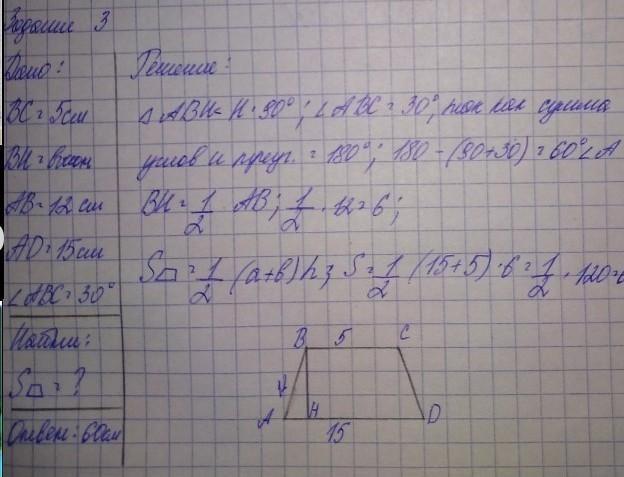 Задание 3
Дано:
BC = 5см
BH = высот
AB = 12 см
AD = 15см
∠ABC = 30°
Найти:
S⏢ = ?
Ответ: 60см
Решение:
△ ABH < H = 90°; ∠ABC = 30°, так как сумма
углов и треуг. = 180°; 180 - (90+30) = 60°∠A
BH = 1/2 AB; 1/2 · 12 = 6;
S⏢ = 1/2 (a+b) h; S = 1/2 (15+5) · 6 = 1/2 · 120 = 6
B 5 C
A H D
15